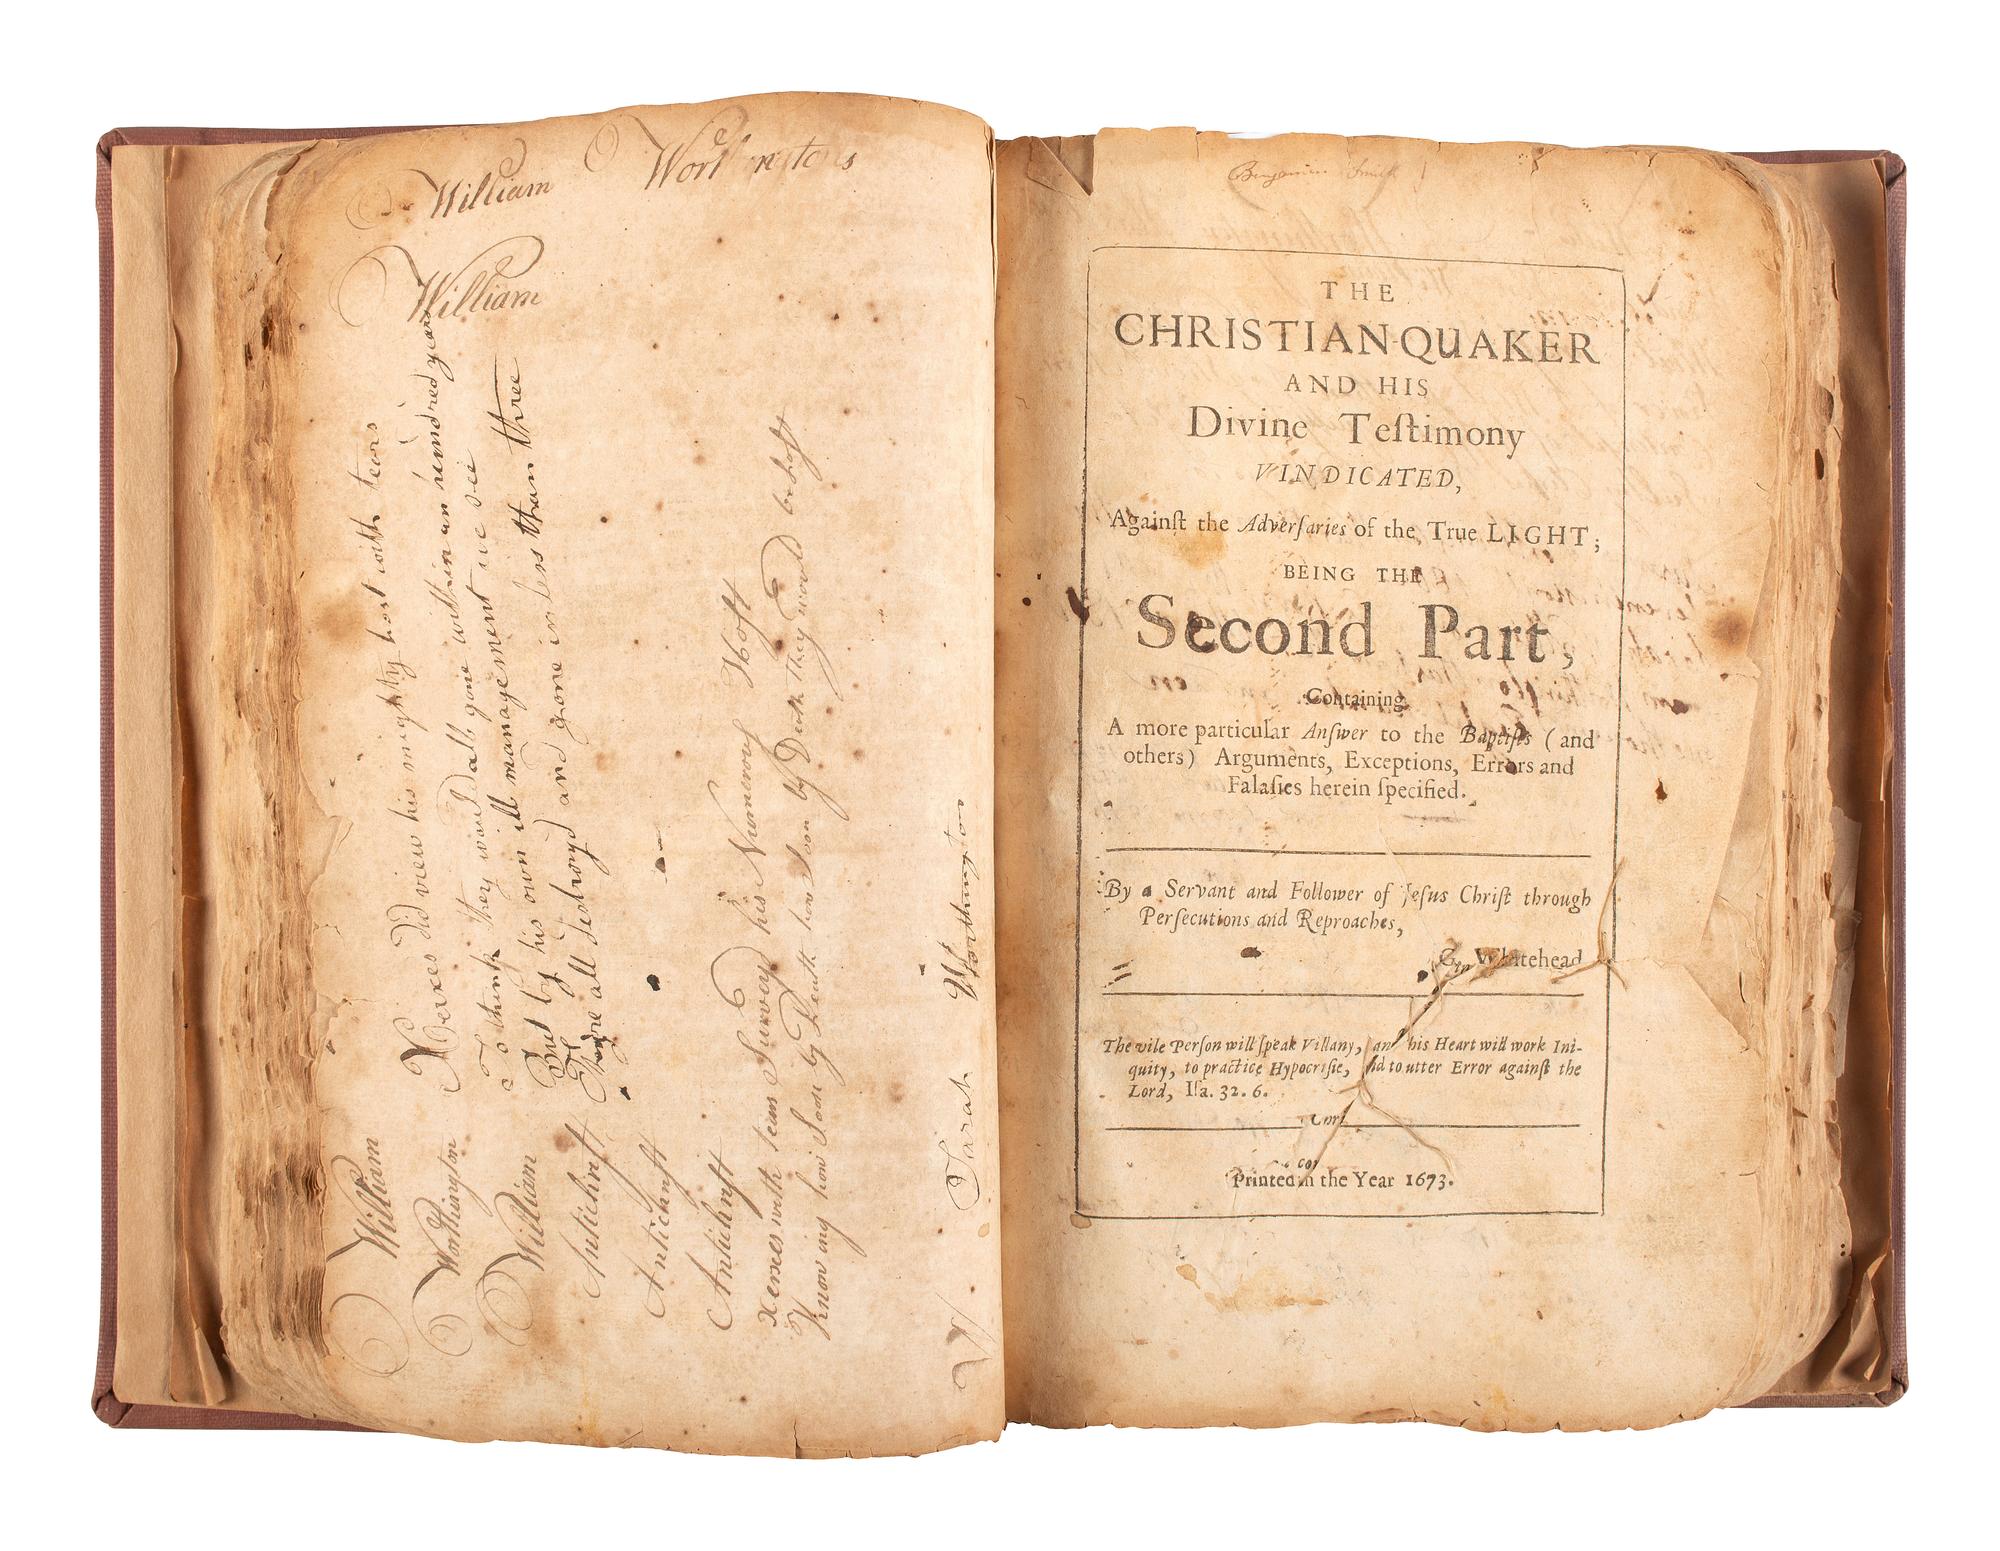 William Worthingtons
William
Xerxes did view his mighty host with tears
To think they would all gone within an hundred years
But by his own ill management we see
They're all destroyd and gone in less than three
William
Worthington
William
Antichrist
Antichrist
Antichrist
Xerxes with tears Surveyd his Numerous Host
Knowing how Soon by Death they would be lost
Sarah Worthington
Benjamin Smith
THE
CHRISTIAN-QUAKER
AND HIS
Divine Teſtimony
VINDICATED,
Againſt the Adverſaries of the True LIGHT;
BEING THE
Second Part,
Containing
A more particular Anſwer to the Baptiſts (and
others) Arguments, Exceptions, Errors and
Falaſies herein ſpecified.
By a Servant and Follower of Jeſus Chriſt through
Perſecutions and Reproaches,
G. Whitehead
The vile Perſon will ſpeak Villany, and his Heart will work Ini-
quity, to practice Hypocriſie, and to utter Error againſt the
Lord, Iſa. 32. 6.
Printed in the Year 1673.